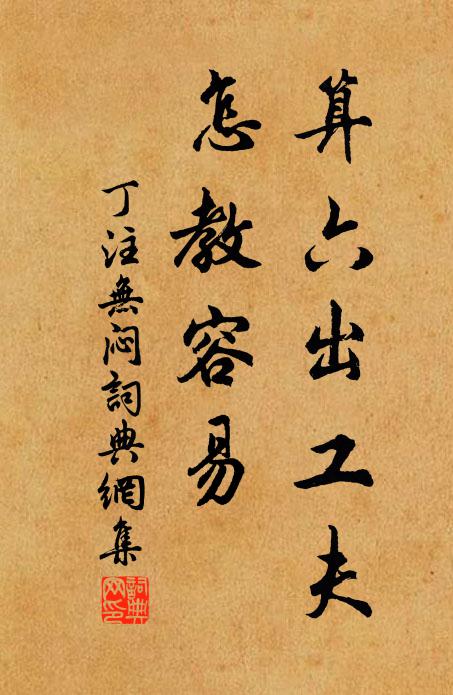 算六出工夫
怎教容易
丁注無悶詞典網集
詞典网印